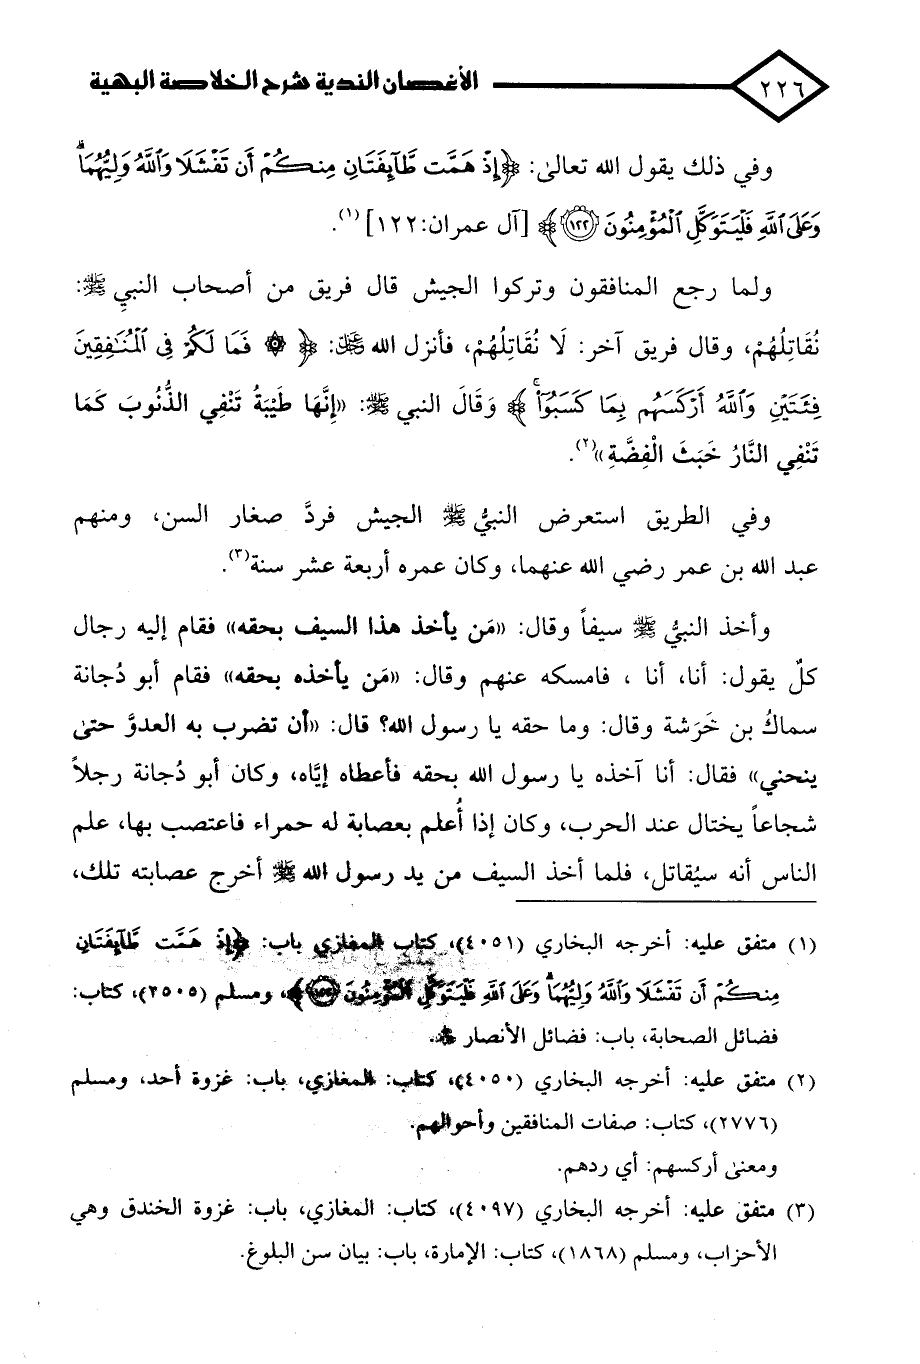 ٢٢٦ الأغصان الندية شرح الخلاصة البهية
وفي ذلك يقول الله تعالىٰ: ﴿إِذْ هَمَّت طَّآئِفَتَانِ مِنكُمْ أَن تَفْشَلَا وَٱللَّهُ وَلِيُّهُمَاۗ
وَعَلَى ٱللَّهِ فَلْيَتَوَكَّلِ ٱلْمُؤْمِنُونَ ١٢٢﴾ [آل عمران:١٢٢] (١).
ولما رجع المنافقون وتركوا الجيش قال فريق من أصحاب النبي ﷺ:
نُقَاتِلُهُمْ، وقال فريق آخر: لَا نُقَاتِلُهُمْ، فأنزل الله ﷻ: ﴿۞ فَمَا لَكُمْ فِى ٱلْمُنَٰفِقِينَ
فِئَتَيْنِ وَٱللَّهُ أَرْكَسَهُم بِمَا كَسَبُوٓا۟ۚ﴾ وَقَالَ النبي ﷺ: «إِنَّهَا طَيْبَةُ تَنْفِي الذُّنُوبَ كَمَا
تَنْفِي النَّارُ خَبَثَ الْفِضَّةِ»(٢).
وفي الطريق استعرض النبيُّ ﷺ الجيش فردَّ صغار السن، ومنهم
عبد الله بن عمر رضي الله عنهما، وكان عمره أربعة عشر سنة(٣).
وأخذ النبيُّ ﷺ سيفاً وقال: «مَن يأخذ هذا السيف بحقه» فقام إليه رجال
كلٌ يقول: أنا، أنا ، فامسكه عنهم وقال: «مَن يأخذه بحقه» فقام أبو دُجانة
سماكُ بن خَرَشة وقال: وما حقه يا رسول الله؟ قال: «أن تضرب به العدوَّ حتىٰ
ينحني» فقال: أنا آخذه يا رسول الله بحقه فأعطاه إيَّاه، وكان أبو دُجانة رجلاً
شجاعاً يختال عند الحرب، وكان إذا أُعلم بعصابة له حمراء فاعتصب بها، علم
الناس أنه سيُقاتل، فلما أخذ السيف من يد رسول الله ﷺ أخرج عصابته تلك،
(١) متفق عليه: أخرجه البخاري (٤٠٥١)، كتاب المغازي باب: ﴿إِذْ هَمَّت طَّآئِفَتَانِ
مِنكُمْ أَن تَفْشَلَا وَٱللَّهُ وَلِيُّهُمَاۗ وَعَلَى ٱللَّهِ فَلْيَتَوَكَّلِ ٱلْمُؤْمِنُونَ ١٢٢﴾، ومسلم (٢٥٠٥)، كتاب:
فضائل الصحابة، باب: فضائل الأنصار
(٢) متفق عليه: أخرجه البخاري (٤٠٥٠)، كتاب: المغازي، باب: غزوة أحد، ومسلم
(٢٧٧٦)، كتاب: صفات المنافقين وأحوالهم.
ومعنىٰ أركسهم: أي ردهم.
(٣) متفق عليه: أخرجه البخاري (٤٠٩٧)، كتاب: المغازي، باب: غزوة الخندق وهي
الأحزاب، ومسلم (١٨٦٨)، كتاب: الإمارة، باب: بيان سن البلوغ.